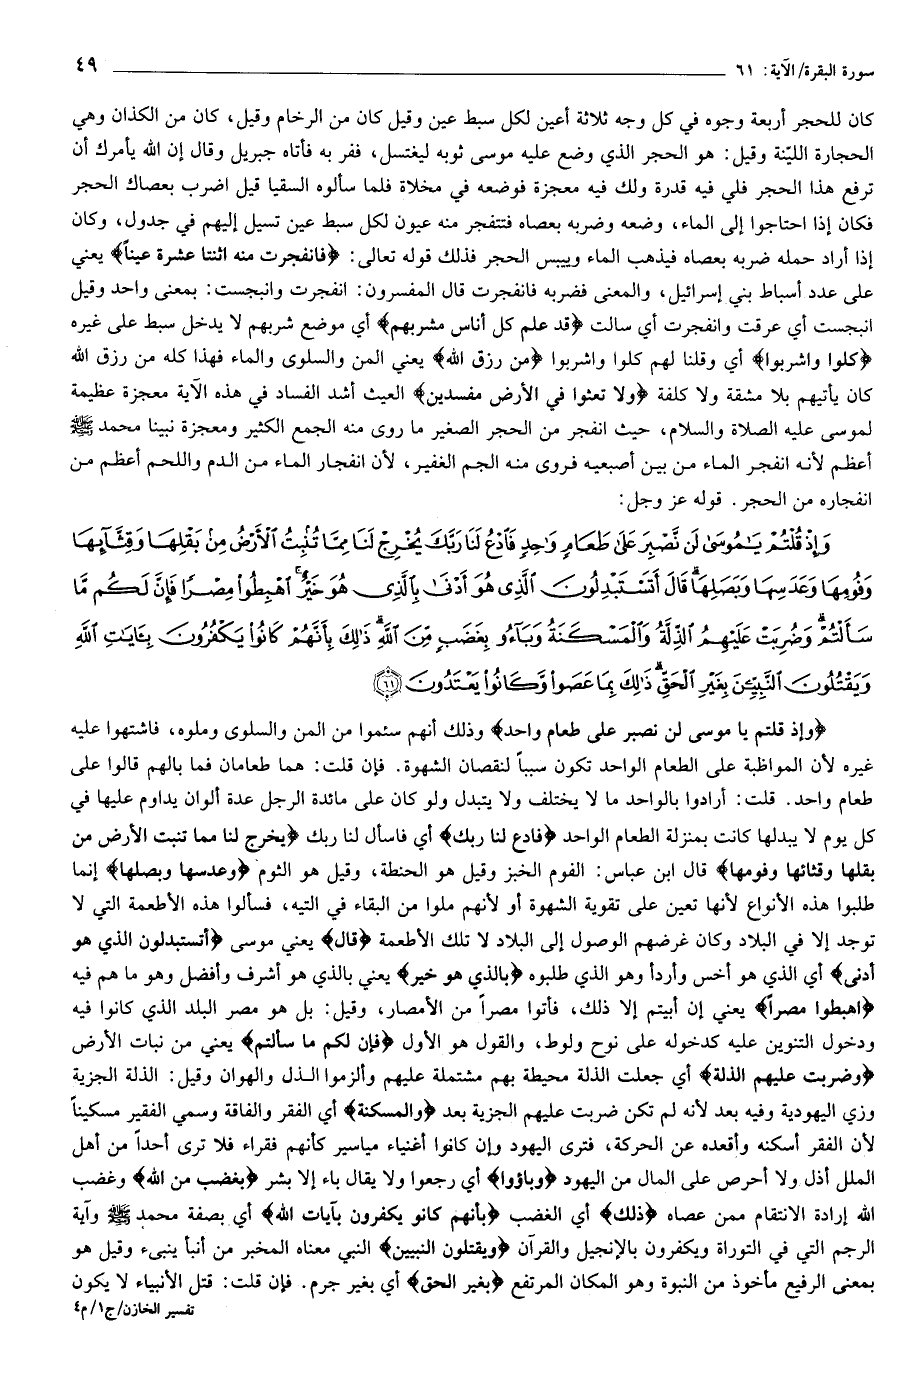 سورة البقرة/ الآية: ٦١ ٤٩
كان للحجر أربعة وجوه في كل وجه ثلاثة أعين لكل سبط عين وقيل كان من الرخام وقيل، كان من الكذان وهي
الحجارة الليّنة وقيل: هو الحجر الذي وضع عليه موسى ثوبه ليغتسل، ففر به فأتاه جبريل وقال إن الله يأمرك أن
ترفع هذا الحجر فلي فيه قدرة ولك فيه معجزة فوضعه في مخلاة فلما سألوه السقيا قيل اضرب بعصاك الحجر
فكان إذا احتاجوا إلى الماء، وضعه وضربه بعصاه فتتفجر منه عيون لكل سبط عين تسيل إليهم في جدول، وكان
إذا أراد حمله ضربه بعصاه فيذهب الماء وييبس الحجر فذلك قوله تعالى: ﴿فانفجرت منه اثنتا عشرة عيناً﴾ يعني
على عدد أسباط بني إسرائيل، والمعنى فضربه فانفجرت قال المفسرون: انفجرت وانبجست: بمعنى واحد وقيل
انبجست أي عرقت وانفجرت أي سالت ﴿قد علم كل أناس مشربهم﴾ أي موضع شربهم لا يدخل سبط على غيره
﴿كلوا واشربوا﴾ أي وقلنا لهم كلوا واشربوا ﴿من رزق الله﴾ يعني المن والسلوى والماء فهذا كله من رزق الله
كان يأتيهم بلا مشقة ولا كلفة ﴿ولا تعثوا في الأرض مفسدين﴾ العيث أشد الفساد في هذه الآية معجزة عظيمة
لموسى عليه الصلاة والسلام، حيث انفجر من الحجر الصغير ما روى منه الجمع الكثير ومعجزة نبينا محمد ﷺ
أعظم لأنه انفجر الماء من بين أصبعيه فروى منه الجم الغفير، لأن انفجار الماء من الدم واللحم أعظم من
انفجاره من الحجر. قوله عز وجل:
وَإِذْ قُلْتُمْ يَٰمُوسَىٰ لَن نَّصْبِرَ عَلَىٰ طَعَامٍ وَٰحِدٍ فَٱدْعُ لَنَا رَبَّكَ يُخْرِجْ لَنَا مِمَّا تُنۢبِتُ ٱلْأَرْضُ مِنۢ بَقْلِهَا وَقِثَّآئِهَا
وَفُومِهَا وَعَدَسِهَا وَبَصَلِهَا ۖ قَالَ أَتَسْتَبْدِلُونَ ٱلَّذِى هُوَ أَدْنَىٰ بِٱلَّذِى هُوَ خَيْرٌ ۚ ٱهْبِطُوا۟ مِصْرًا فَإِنَّ لَكُم مَّا
سَأَلْتُمْ ۗ وَضُرِبَتْ عَلَيْهِمُ ٱلذِّلَّةُ وَٱلْمَسْكَنَةُ وَبَآءُو بِغَضَبٍ مِّنَ ٱللَّهِ ۗ ذَٰلِكَ بِأَنَّهُمْ كَانُوا۟ يَكْفُرُونَ بِـَٔايَٰتِ ٱللَّهِ
وَيَقْتُلُونَ ٱلنَّبِيِّـۧنَ بِغَيْرِ ٱلْحَقِّ ۗ ذَٰلِكَ بِمَا عَصَوا۟ وَّكَانُوا۟ يَعْتَدُونَ ﴿٦١﴾
﴿وإذ قلتم يا موسى لن نصبر على طعام واحد﴾ وذلك أنهم سئموا من المن والسلوى وملوه، فاشتهوا عليه
غيره لأن المواظبة على الطعام الواحد تكون سبباً لنقصان الشهوة. فإن قلت: هما طعامان فما بالهم قالوا على
طعام واحد. قلت: أرادوا بالواحد ما لا يختلف ولا يتبدل ولو كان على مائدة الرجل عدة ألوان يداوم عليها في
كل يوم لا يبدلها كانت بمنزلة الطعام الواحد ﴿فادع لنا ربك﴾ أي فاسأل لنا ربك ﴿يخرج لنا مما تنبت الأرض من
بقلها وقثائها وفومها﴾ قال ابن عباس: الفوم الخبز وقيل هو الحنطة، وقيل هو الثوم ﴿وعدسها وبصلها﴾ إنما
طلبوا هذه الأنواع لأنها تعين على تقوية الشهوة أو لأنهم ملوا من البقاء في التيه، فسألوا هذه الأطعمة التي لا
توجد إلا في البلاد وكان غرضهم الوصول إلى البلاد لا تلك الأطعمة ﴿قال﴾ يعني موسى ﴿أتستبدلون الذي هو
أدنى﴾ أي الذي هو أخس وأردأ وهو الذي طلبوه ﴿بالذي هو خير﴾ يعني بالذي هو أشرف وأفضل وهو ما هم فيه
﴿اهبطوا مصراً﴾ يعني إن أبيتم إلا ذلك، فأتوا مصراً من الأمصار، وقيل: بل هو مصر البلد الذي كانوا فيه
ودخول التنوين عليه كدخوله على نوح ولوط، والقول هو الأول ﴿فإن لكم ما سألتم﴾ يعني من نبات الأرض
﴿وضربت عليهم الذلة﴾ أي جعلت الذلة محيطة بهم مشتملة عليهم وألزموا الذل والهوان وقيل: الذلة الجزية
وزي اليهودية وفيه بعد لأنه لم تكن ضربت عليهم الجزية بعد ﴿والمسكنة﴾ أي الفقر والفاقة وسمي الفقير مسكيناً
لأن الفقر أسكنه وأقعده عن الحركة، فترى اليهود وإن كانوا أغنياء مياسير كأنهم فقراء فلا ترى أحداً من أهل
الملل أذل ولا أحرص على المال من اليهود ﴿وباؤوا﴾ أي رجعوا ولا يقال باء إلا بشر ﴿بغضب من الله﴾ وغضب
الله إرادة الانتقام ممن عصاه ﴿ذلك﴾ أي الغضب ﴿بأنهم كانو يكفرون بآيات الله﴾ أي بصفة محمد ﷺ وآية
الرجم التي في التوراة ويكفرون بالإنجيل والقرآن ﴿ويقتلون النبيين﴾ النبي معناه المخبر من أنبأ ينبىء وقيل هو
بمعنى الرفيع مأخوذ من النبوة وهو المكان المرتفع ﴿بغير الحق﴾ أي بغير جرم. فإن قلت: قتل الأنبياء لا يكون
تفسير الخازن/ج١/م٤